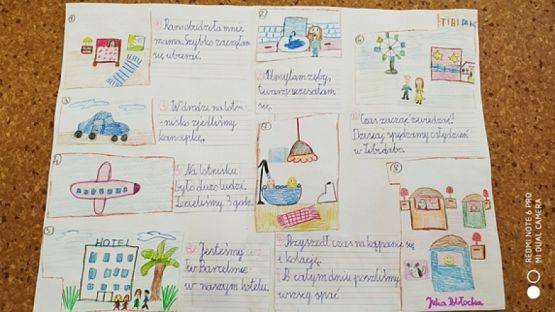 1
Rano obudziła mnie
mama. Szybko zaczęłam
się ubierać.
2
Umyłam zęby,
twarz i uczesałam
się.
3
W drodze na lotni-
nisko zjedliśmy
kanapkę.
4
Na lotnisku
było dużo ludzi.
Lecieliśmy 3 godz.
5
HOTEL
Jesteśmy
w Barcelonie
w naszym hotelu.
6
TIBI DABO
Czas zacząć zwiedzać!
Dzisiaj spędzamy cały dzień
w Tibidabo.
7
Przyszedł czas na kąpanie się
i kolację.
8
Po całym dniu poszliśmy
wszyscy spać.
Julia
REDMI NOTE 6 PRO
MI DUAL CAMERA